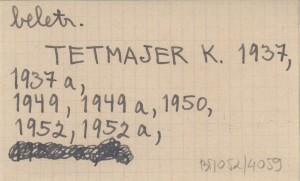 beletr.
TETMAJER K. 1937,
1937 a,
1949, 1949 a, 1950,
1952, 1952 a,